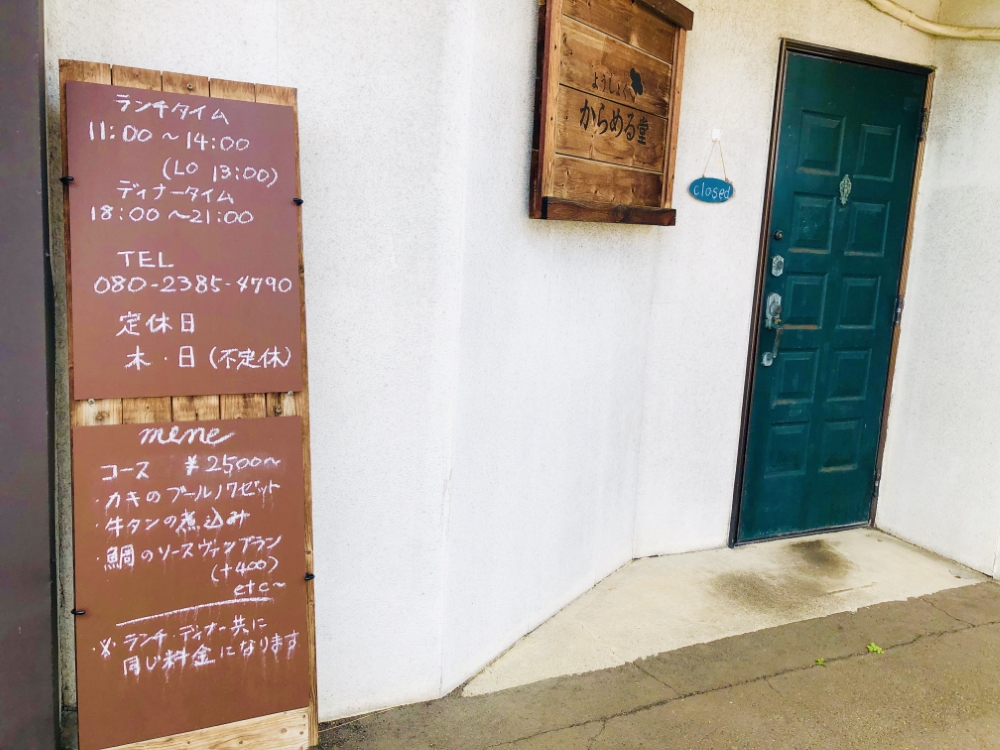 ランチタイム
11:00～14:00
(LO 13:00)
ディナータイム
18:00～21:00
TEL
080-2385-4790
定休日
木・日(不定休)
mene
コース ¥2500～
・カキのブールノワゼット
・牛タンの煮込み
・鯛のソースヴァンブラン
(+400)
etc～
※ランチ・ディナー共に
同じ料金になります
ようしょく
からめる堂
closed